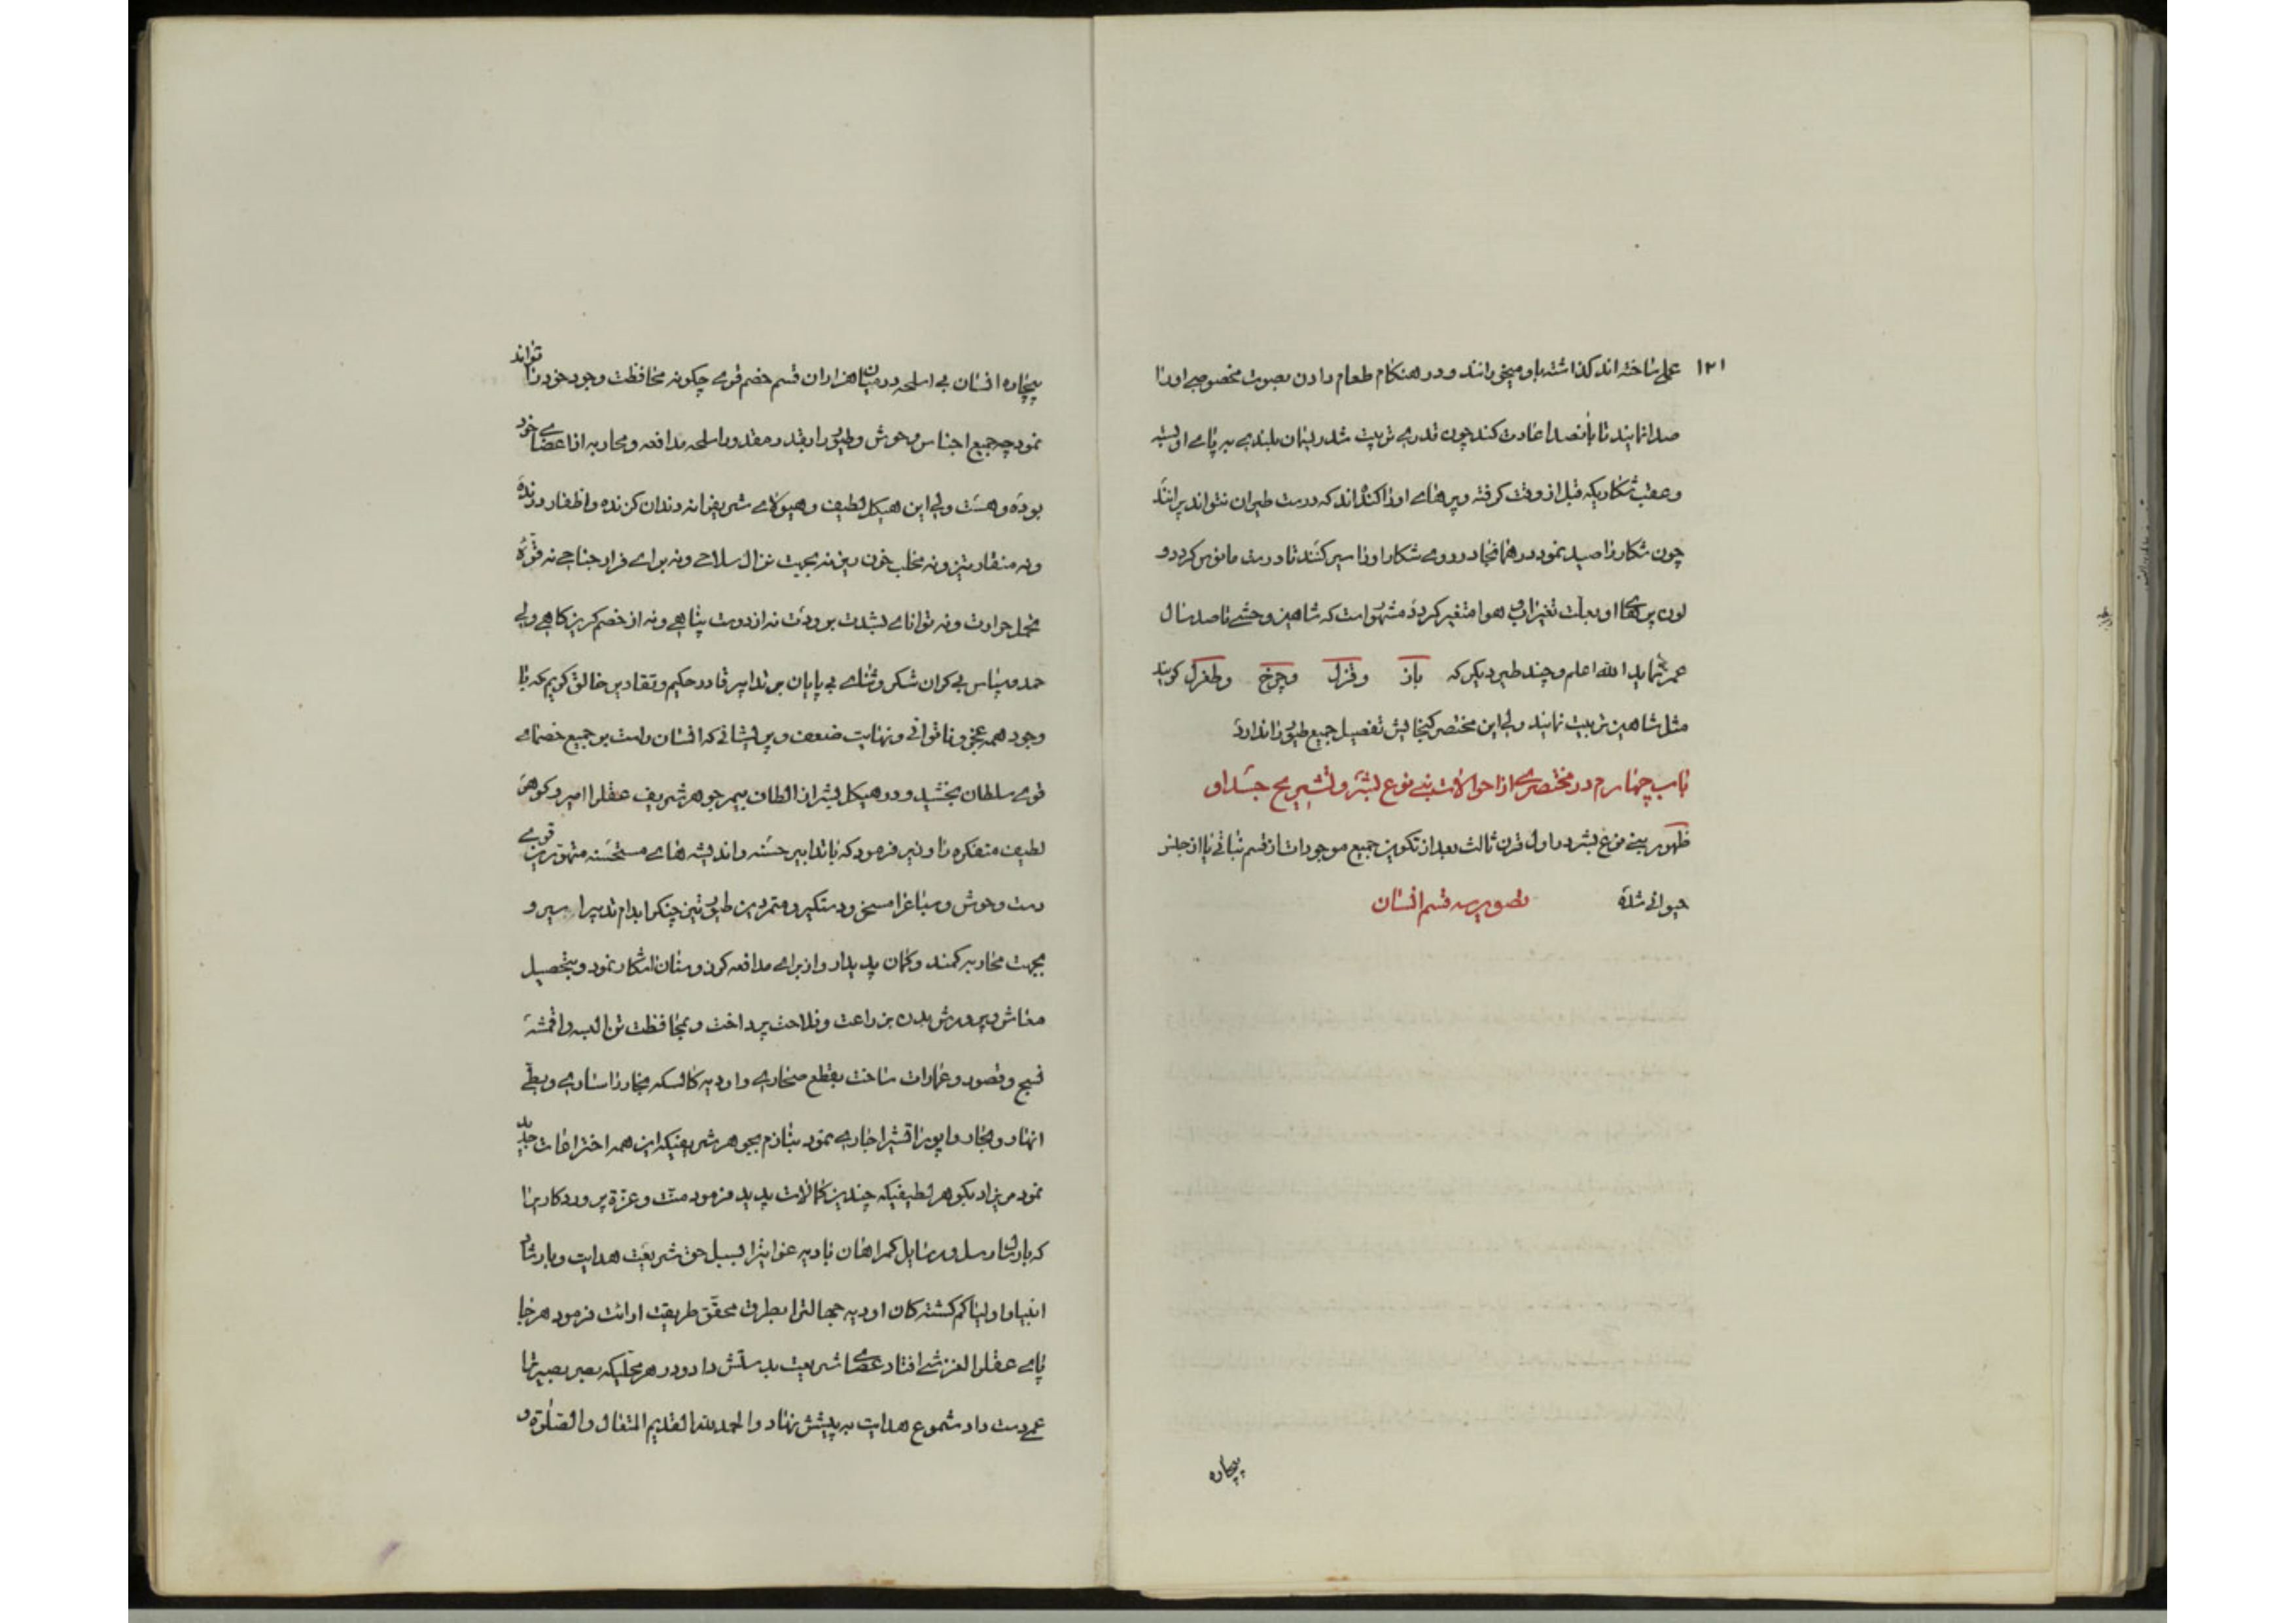 ۱۲۱
عملی ساخته‌اند گذاشته باو میخورانند و در هنگام طعام دادن بصوت مخصوصی او را
صدا نمایند تا بانصدا عادت کند چون قدری تربیت شد ریسمان بلندی به پای او بسته
و عقب شکاریکه قبل از وقت گرفته و پرهای او را کنده‌اند که درست طیران نتواند پرانند
چون شکار را صید نمود در همانجا در روی شکار او را سیر کنند تا درست مانوس گردد و
لون پرهای او بعلت تغیر آب و هوا متغیر گردد مشهور است که شاهین وحشی تا صد سال
عمر نماید الله اعلم و چند طیر دیگر که باز و قزل و چرخ و طغرل گویند
مثل شاهین تربیت نمایند ولی این مختصر گنجایش تفصیل جمیع طیور را ندارد
باب چهارم در مختصری از احوالات بنی نوع بشر و تشریح جسد او
ظهور بنی نوع بشر در اول قرن ثالث بعد از تکوین جمیع موجودات از قسم نباتی یا از جنس
حیوانی شده تصویر سه قسم انسان
بیچاره
بیچاره انسان بی اسلحه در میان هزاران قسم خصم قوی چگونه محافظت وجود خود را تواند
نمود چه جمیع اجناس وحوش و طیور را بقدر مقدور اسلحه مدافعه و محاربه از اعضای خود
بوده و هست ولی این هیکل لطیف و هیولای شریف را نه دندان کزنده و اظفار درنده
و نه منقار تیز و نه مخلب خون ریز نه بجهت نزال سلاحی و نه برای فرار جناحی نه قوّه
تحمل حرارت و نه توانائی بشدت برودت نه از دوست پناهی و نه از خصم گریزگاهی ولی
حمد و سپاس بی کران شکر و ثنای بی پایان بر تدابیر قادر حکیم و تقادیر خالق کریم که با
وجود همه عجز و ناتوانی و نهایت ضعف و پریشانی که انسان راست بر جمیع خصمای
قوی سلطان بخشید و در هیکل بشر از الطاف بیمر جوهر شریف عقلرا امیر و گوهر
لطیف متفکره را وزیر فرمود که با تدابیر حسنه و اندیشه‌های مستحسنه متهورین قوی
دست وحوش و سباع را مسخر و دستگیر و متمردین طیور تیز چنگرا بدام تدبیر اسیر و
بجهت محاربه کمند و کمان پدیدار و از برای مدافعه گرز و سنان اشکار نمود و بتحصیل
معاش و پرورش بدن بزراعت و فلاحت پرداخت و بمحافظت تن البسه و اقمشه
نسج و قصور و عمارات ساخت بقطع صحاری و اودیه کالسکه بخار را ساری و بطی
انهار و بحار واپور اتشیرا جاری نمود بنازم بجوهر شریفیکه این همه اختراعات جدید
نمود مریزاد بگوهر لطیفیکه چندین کمالات پدید فرمود منت و عزة پروردگاریرا
که بارشاد رسل و رسایل گمراهان بادیه غوایترا بسبیل حق شریعت هدایت و بارشاد
انبیا و اولیا گم گشته‌گان اودیه جهالترا بطرق محقق طریقت ارائت فرمود هر جا
پای عقلرا لغزشی افتاد عصای شریعت بدستش داد و در هر محلیکه بصر بصیرترا
عمی دست داد شموع هدایت به پیشش نهاد و الحمد لله القدیم المتعال و الصلوة و